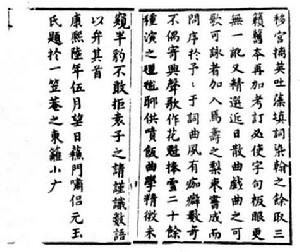 移宮摘英吐藻填詞染翰之餘取三
籟舊本再加考訂必使字句板眼更
無一訛又精選近日散曲戲曲之可
歌可詠者加入焉壽之梨棗書成而
問序於予予于詞曲夙有痂癖數奇
不偶寄興聲歌作花魁捧雪二十餘
種演之氍毹聊供噴飯曲學精微未
窺半豹不敢拒袁子之請謹識數語
以弁其首
康熙陸年伍月望日蘇門嘯侶元玉
氏題於一笠菴之東籬小广